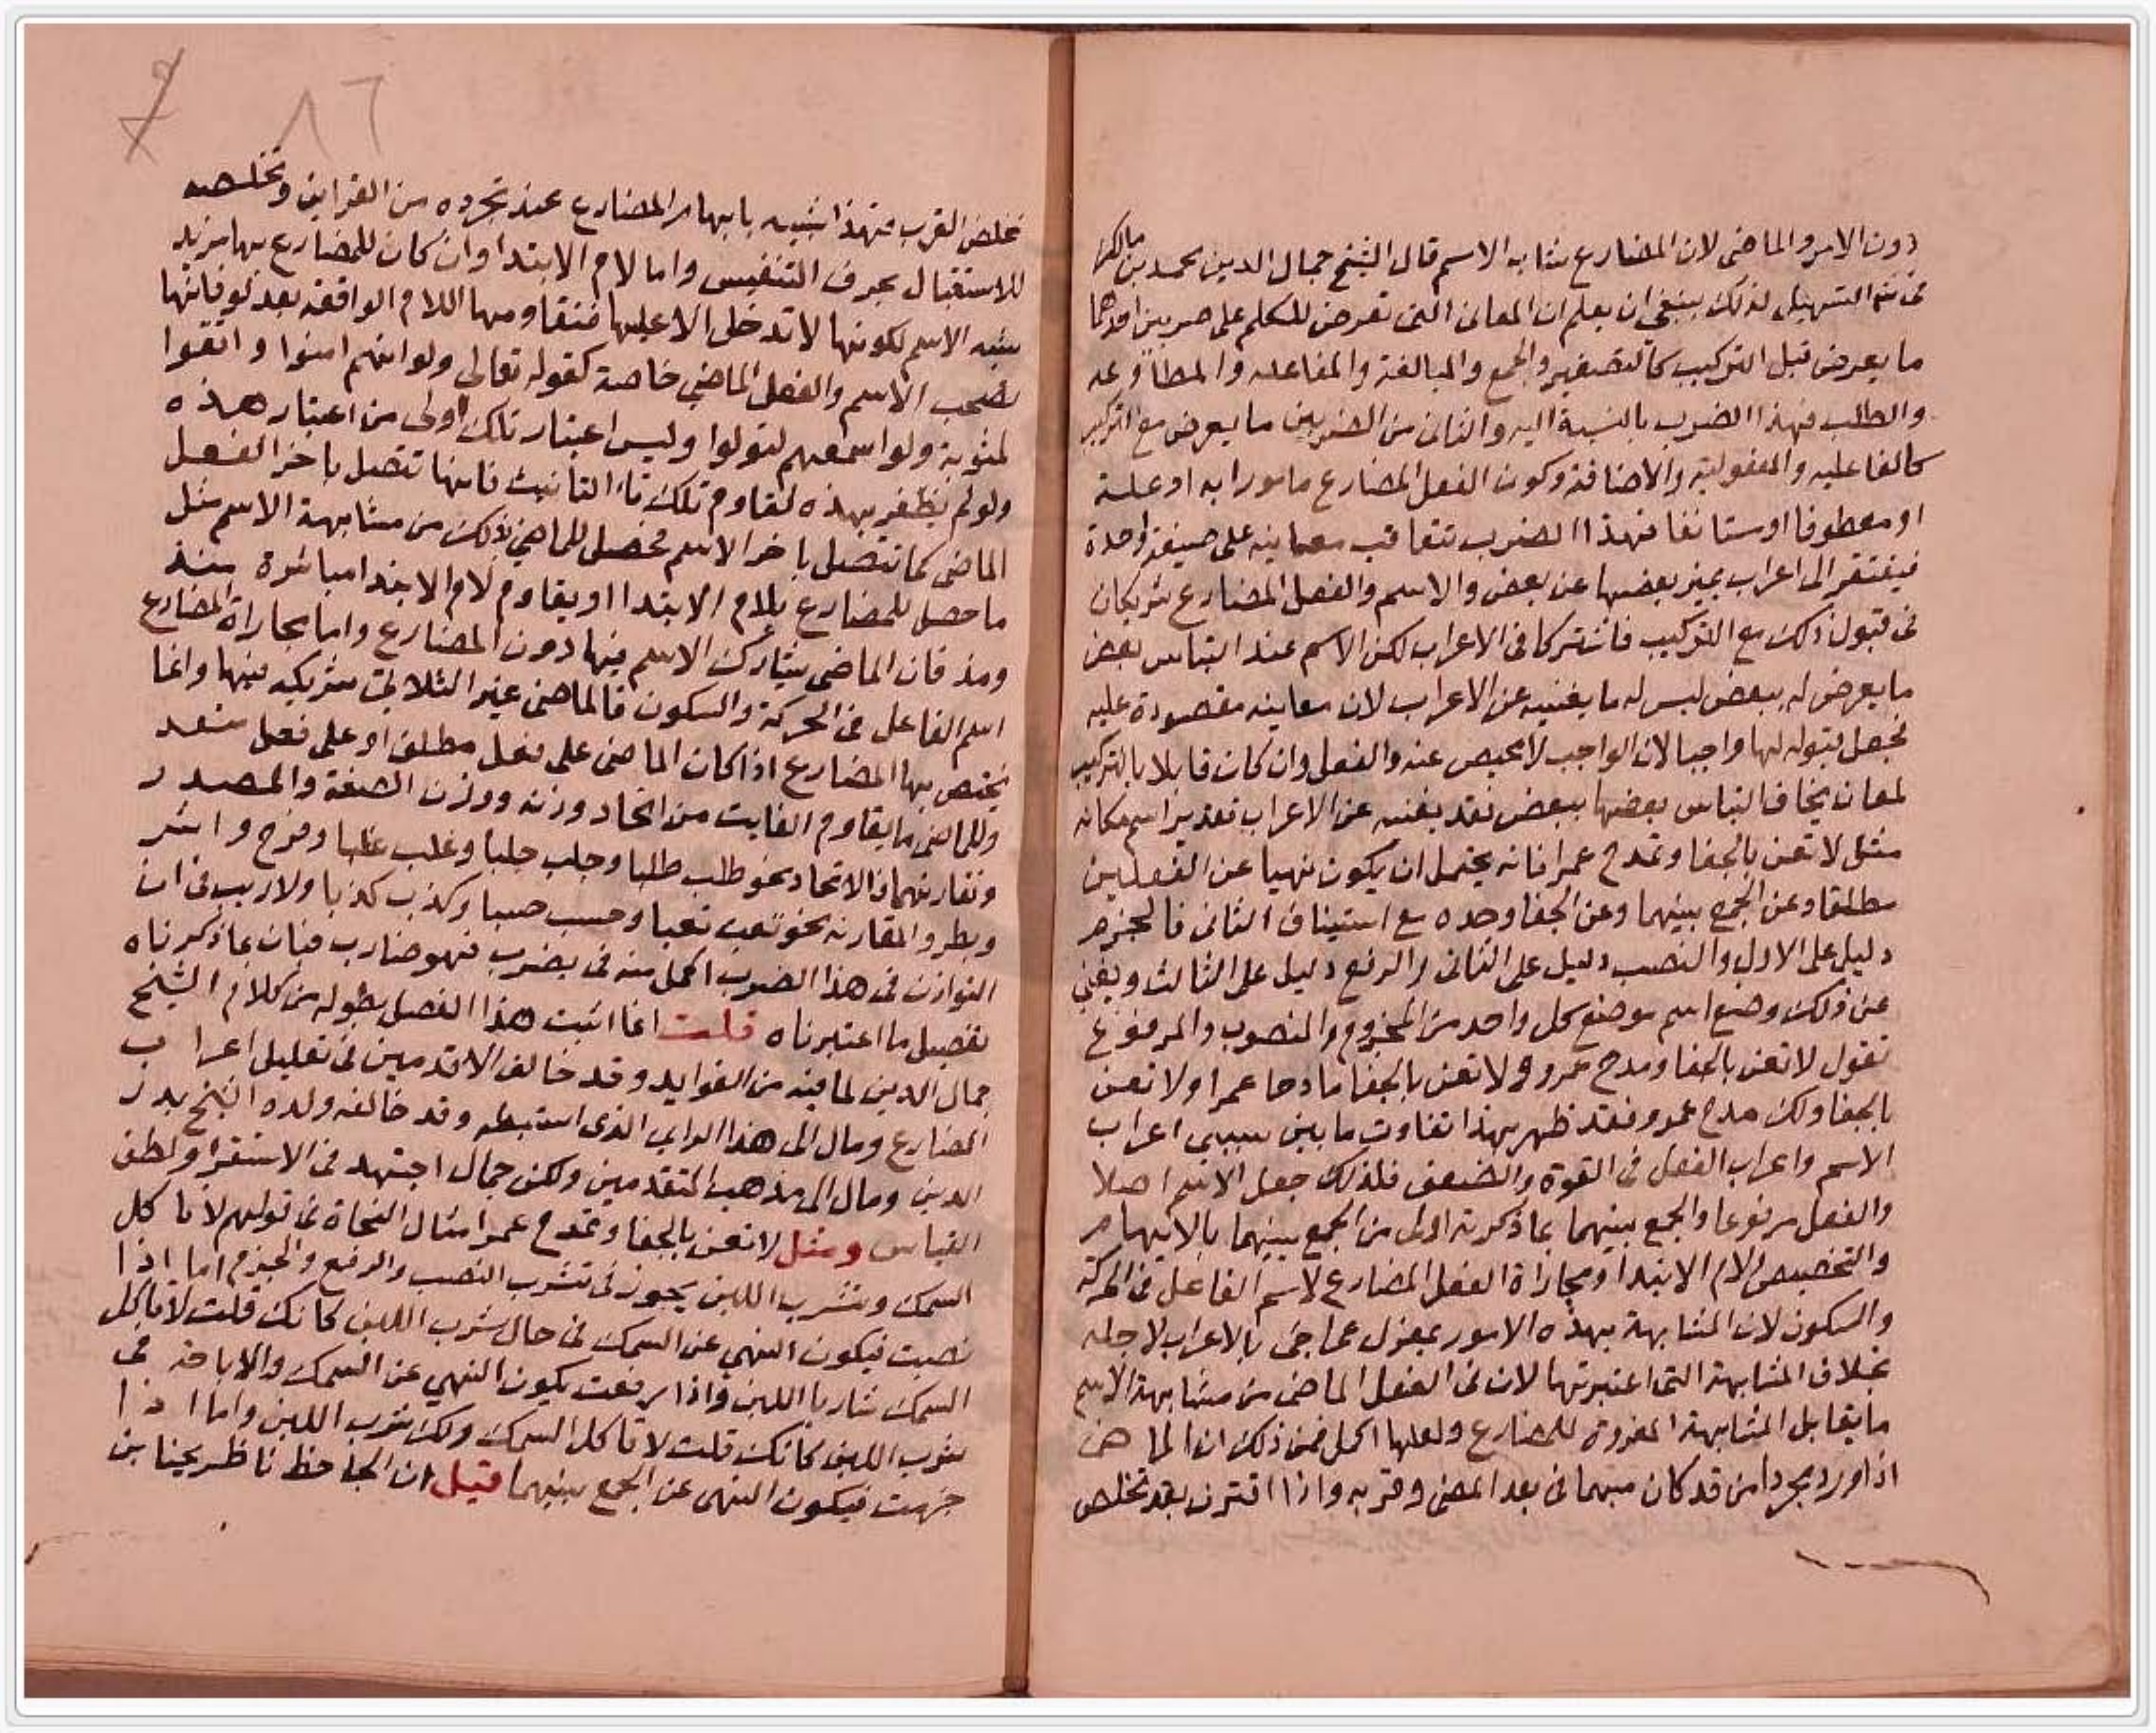 دون الامر والماضي لان المضارع شابه الاسم قال الشيخ جمال الدين محمد بن مالك
في التسهيل لذلك ينبغي ان يعلم ان المعاني التي تعرض للكلم على ضربين احدهما
ما يعرض قبل التركيب كالتصغير والجمع والمبالغة والمفاعله والمطاوعه
والطلب فهذا الضرب بالنسبة اليه والثاني من الضربين ما يعرض مع التركيب
كالفاعليه والمفعولية والاضافة وكون الفعل المضارع مامورا به او علة
او معطوفا او مستانفا فهذا الضرب تتعاقب معانيه على صيغة واحدة
فيفتقر الى اعراب يميز بعضها عن بعض والاسم والفعل المضارع شريكان
في قبول ذلك مع التركيب فاشتركا في الاعراب لكن الاسم عند التباس بعض
ما يعرض له ببعض ليس له ما يغنيه عن الاعراب لان معانيه مقصورة عليه
فجعل قبوله لها واجبا لان الواجب لا محيص عنه والفعل وان كان قابلا بالتركيب
لمعان يخاف التباس بعضها ببعض فقد يغنيه عن الاعراب تقدير اسم مكانه
مثل لا تعن بالجفا وتمدح عمرا فانه يحتمل ان يكون نهيا عن الفعلين
مطلقا وعن الجمع بينهما وعن الجفا وحده مع استيناف الثاني فالجزم
دليل على الاول والنصب دليل على الثاني والرفع دليل على الثالث ويغني
عن ذلك وضع اسم موضع كل واحد من المجزوم والمنصوب والمرفوع
تقول لا تعن بالجفا ومدح عمرو ولا تعن بالجفا مادحا عمرا ولا تعن
بالجفا ولك مدح عمرو فقد ظهر بهذا تفاوت ما بين سببي اعراب
الاسم واعراب الفعل في القوة والضعف فلذلك جعل الاسم اصلا
والفعل مرفوعا والجمع بينهما بما ذكرته اولى من الجمع بينهما بالابهام
والتخصيص ولام الابتدا ومجاراة الفعل المضارع لاسم الفاعل في الحركة
والسكون لان المشابهة بهذه الامور بمعزل عما جئ بالاعراب لاجله
بخلاف المشابهة التي اعتبرتها لان في الفعل الماضي من مشابهة الاسم
ما يقابل المشابهة المعزوة للمضارع ولعلها اكمل فمن ذلك ان الماضي
اذا ورد مجردا من قد كان مبهما في بعد المضي وقربه واذا اقترن بقد تخلص
٨٦
تخلص القرب فهذا شبيه بابهام المضارع عند تجرده من القراين وتخلصه
للاستقبال بحرف التنفيس واما لام الابتدا وان كان للمضارع بها مزيد
شبه الاسم لكونها لا تدخل الا عليها فتقاومها اللام الواقعة بعد لو فانها
تصحب الاسم والفعل الماضي خاصة كقوله تعالى ولو انهم امنوا واتقوا
لمثوبة ولو اسمعهم لتولوا وليس اعتبار تلك اولى من اعتبار هذه
ولو لم نظفر بهذه لقاوم تلك تاء التانيث فانها تتصل باخر الفعل
الماضي كما تتصل باخر الاسم فحصل للماضي بذلك من مشابهة الاسم مثل
ما حصل للمضارع بلام الابتدا او يقاوم لام الابتدا مباشرة منذ
ومذ فان الماضي يشارك الاسم فيها دون المضارع واما مجاراة المضارع
اسم الفاعل في الحركة والسكون فالماضي غير الثلاثي شريكه فيها وانما
يختص بها المضارع اذا كان الماضي على فعل مطلق او على فعل متعد
وللماضي ما يقاوم الفايت من اتحاد وزنه ووزن الصفة والمصدر
وتقاربهما فالاتحاد نحو طلب طلبا وجلب جلبا وغلب غلبا وفرح واشر
وبطر والمقاربة نحو تعب تعبا وحسب حسبا وكذب كذبا ولا ريب في ان
التوازن في هذا الضرب اكمل منه في يضرب فهو ضارب فبان بما ذكرناه
تفضيل ما اعتبرناه قلت انما اثبت هذا الفصل بطوله من كلام الشيخ
جمال الدين لما فيه من الفوايد وقد خالف الاقدمين في تعليل اعراب
المضارع ومال الى هذا الراي الذي استنبطه وقد خالفه ولده الشيخ بدر
الدين ومال الى مذهب المتقدمين ولكن جمال اجتهد في الاستقرا ولطف
القياس ومثل لا تعن بالجفا وتمدح عمرا مثال النحاة في قولهم لا تاكل
السمك وتشرب اللبن يجوز في تشرب النصب والرفع والجزم اما اذا
نصبت فيكون النهي عن السمك في حال شرب اللبن كانك قلت لا تاكل
السمك شاربا اللبن واذا رفعت يكون النهي عن السمك والاباحة في
شرب اللبن كانك قلت لا تاكل السمك ولك شرب اللبن واما اذا
جزمت فيكون النهي عن الجمع بينهما قيل ان الجاحظ ناظر يحنا بن